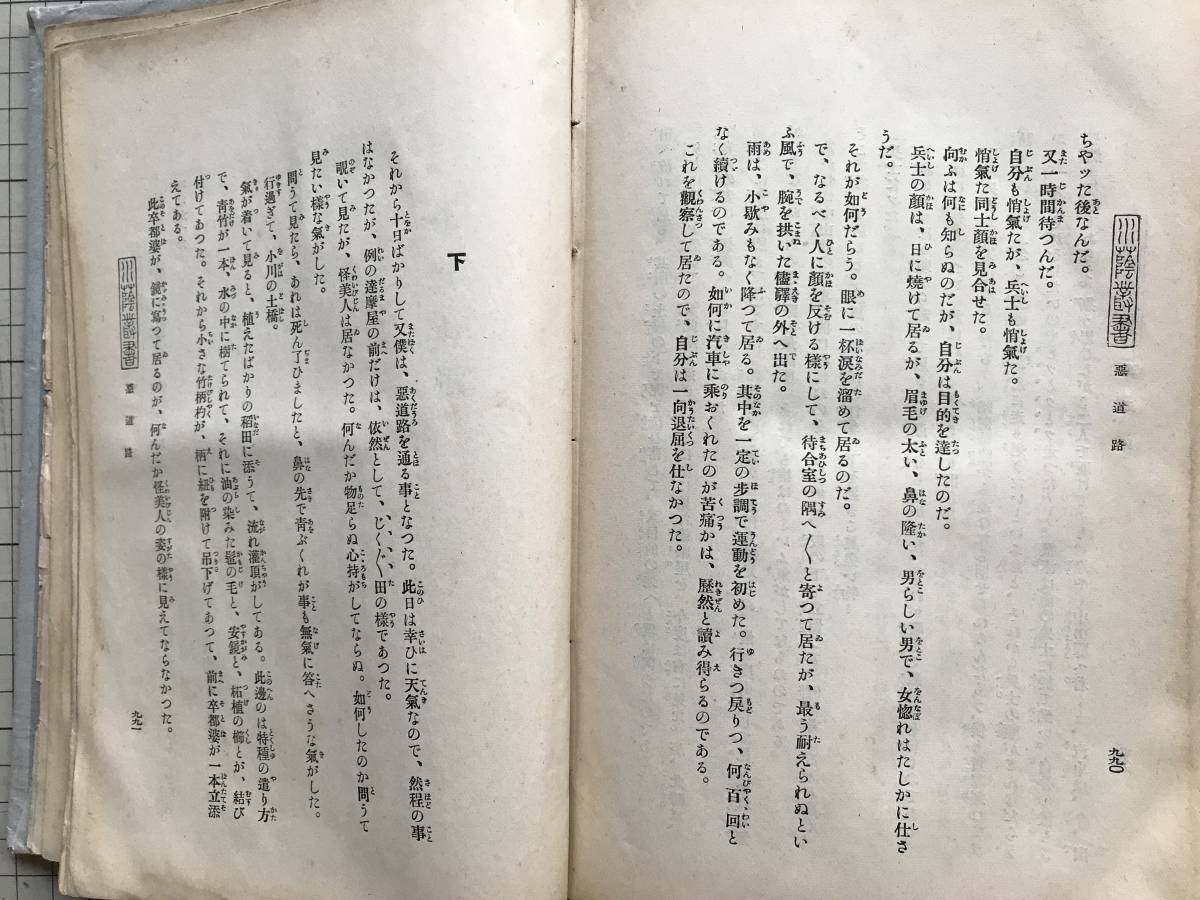 惡道路
九九〇
ちやッた後なんだ。
又一時間待つんだ。
自分も悄氣たが、兵士も悄氣た。
悄氣た同士顔を見合せた。
向ふは何も知らぬのだが、自分は目的を達したのだ。
兵士の顔は、日に燒けて居るが、眉毛の太い、鼻の隆い、男らしい男で、女惚れはたしかに仕さ
うだ。
それが如何だらう。眼に一杯涙を溜めて居るのだ。
で、なるべく人に顔を反ける樣にして、待合室の隅へ〱と寄つて居たが、最う耐えられぬとい
ふ風で、腕を拱いた儘驛の外へ出た。
雨は、小歇みもなく降つて居る。其中を一定の歩調で運動を初めた。行きつ戻りつ、何百回と
なく續けるのである。如何に汽車に乘おくれたのが苦痛かは、歴然と讀み得らるるのである。
これを觀察して居たので、自分は一向退屈を仕なかつた。
下
それから十日ばかりして又僕は、惡道路を通る事となつた。此日は幸ひに天氣なので、然程の事
はなかつたが、例の達摩屋の前だけは、依然として、じく〱田の樣であつた。
覗いて見たが、怪美人は居なかつた。何んだか物足らぬ心持がしてならぬ。如何したのか問うて
見たい樣な氣がした。
問うて見たら、あれは死ん了ひましたと、鼻の先で靑ぶくれが事も無氣に答へさうな氣がした。
行過ぎて、小川の土橋。
氣が着いて見ると、植えたばかりの稻田に添うて、流れ灌頂がしてある。此邊のは特種の遣り方
で、靑竹が一本、水の中に樹てられて、それに油の染みた髢の毛と、安鏡と、柘植の櫛とが、結び
付けてあつた。それから小さな竹柄杓が、柄に紐を附けて吊下げてあつて、前に卒都婆が一本立添
えてある。
此卒都婆が、鏡に寫つて居るのが、何んだか怪美人の姿の樣に見えてならなかつた。
惡道路
九九一